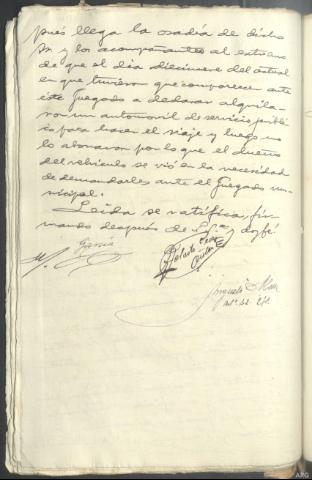 pues llega la osadía de dicho
Sr. y los acompañantes al extremo
de que el día diecinueve del actual
en que tuvieron que comparecer ante
este Juzgado a declarar alquila-
ron un automovil de servicio públi-
co para hacer el viaje y luego no
lo abonaron por lo que el dueño
del vehiculo se vió en la necesidad
de demandarles ante el Juzgado mu-
nicipal.
Leida se ratifica, fir-
mando después de S.Sª y doy fé
García